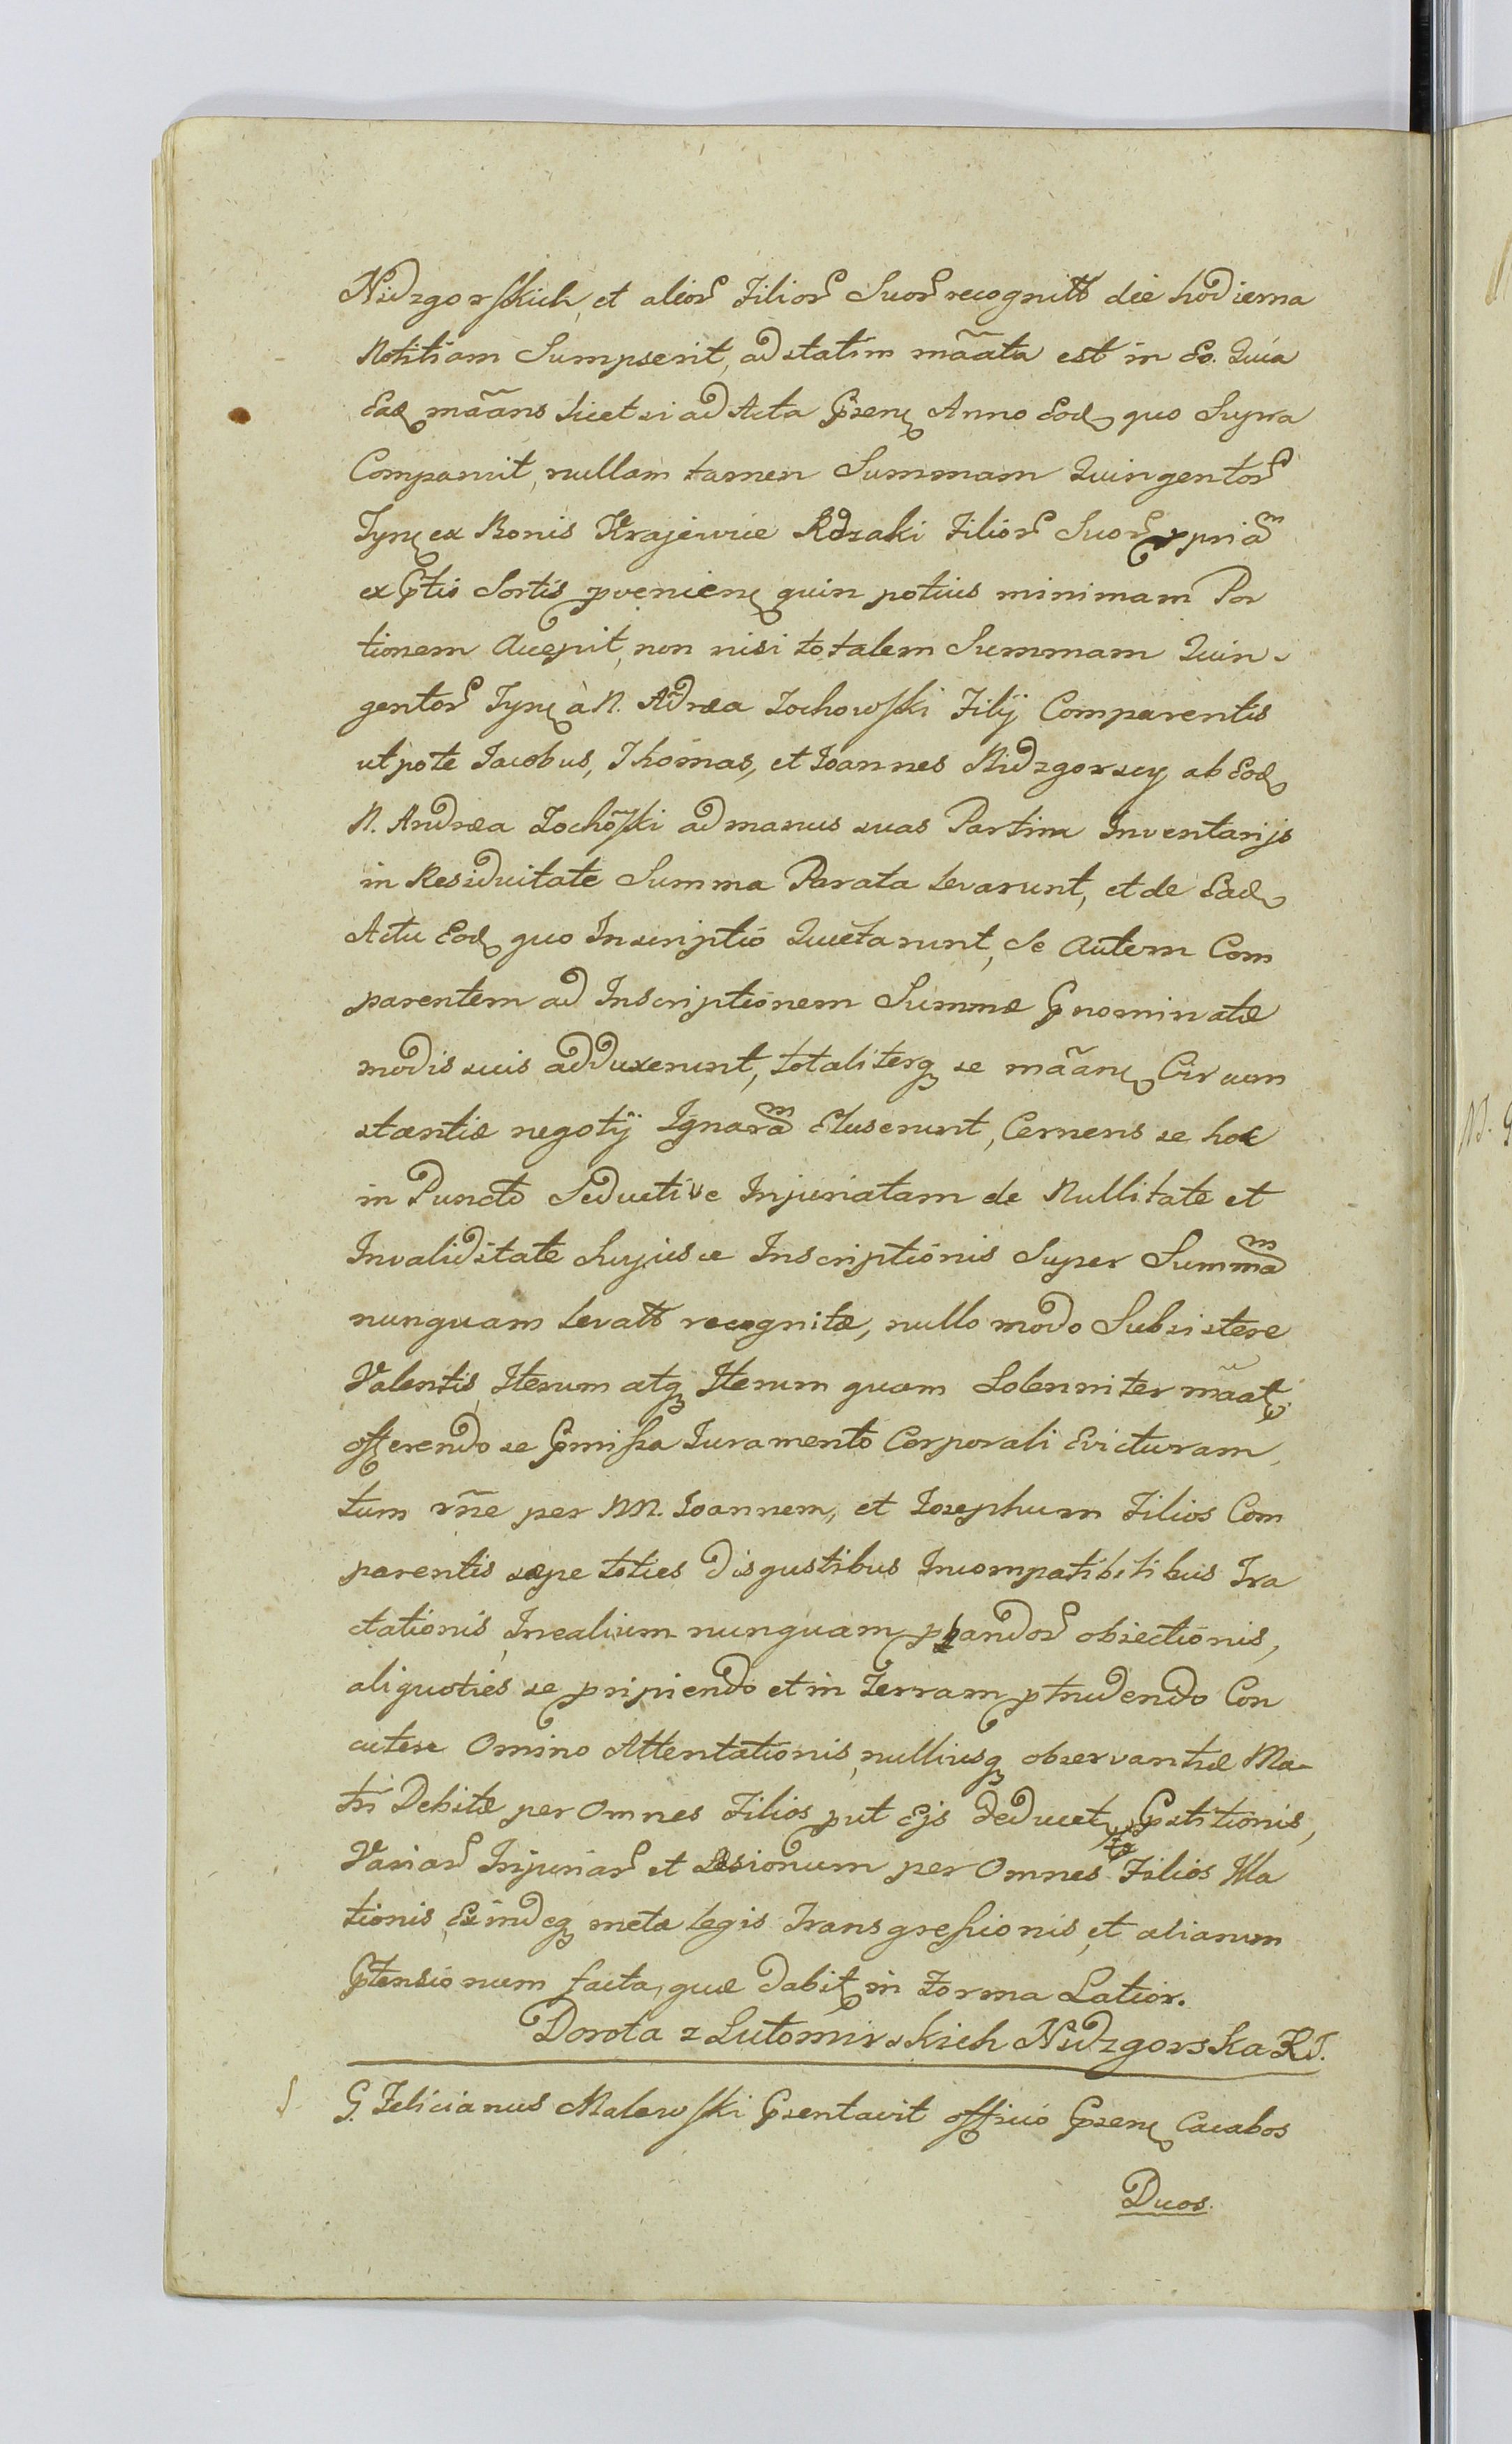 Nidzgorskich, et alior Filior Suor recognitt die hodierna
Notitiam Sumpserit, ad statim mããta est in Eo. Quia
Ead mããns licet si ad Acta Gpsen Anno Eod quo Supra
Comparuit, nullam tamen Summam Quingentor
Tyn ex Bonis Krajewice Kozaki Filior Suor ppria m
ex Gptio Sortis pvenien quin potius minimam Por
tionem Accepit, non nisi totalem Summam Quin-
gentor Tyn à N. Adrea Zochowski Filij Comparentis
utpote Jacobus, Thomas, et Joannes Nidzgorscy ab Eod
N. Andrea Zochõski ad manus suas Partim Inventarijs
in Residuitate Summa Parata levarunt, et de Ead
Actu Eod quo Inscriptio Quietarunt, se autem Com
parentem ad Inscriptionem Summæ Gpnominatæ
modis suis adduxerunt, totaliterq se mããn Circum
stantiæ negotij Ignara m Eluserunt, Cernens se hoc
in Puncto Seductive Injuriatam de Nullitate et
Invaliditate hujusce Inscriptionis Super Summa m
nunquam levatt recognitæ, nullo modo Subsistere
Valentis, Iterum atq Iterum quam Solenniter mããt
offerendo se Gpmissa Juramento Corporali Evicturam,
tum rñe per NN. Joannem, et Josephum Filios Com
parentis sæpe toties disgustibus Incompatibilibus Tra
ctationis, Inealium nunquam pbandor obiectionis,
aliquoties se pripiendo et in Terram ptrudendo Con
cutere Omino Attentationis, nulliusq observantiæ Ma-
tri Debitæ per Omnes Filios put Ejs deducet Gpstitionis,
Variar Injuriar et Læsionum per Omnes Filios Illa
tionis, Exindeq metæ legis Transgressionis, et aliarum
Gptensionum facta, quæ dabit in Forma Latior.
Dorota z Lutomirskich Nidzgorska
G. Felicianus Malewski Gpsentavit officio Gpsen Cacabos
Duos.